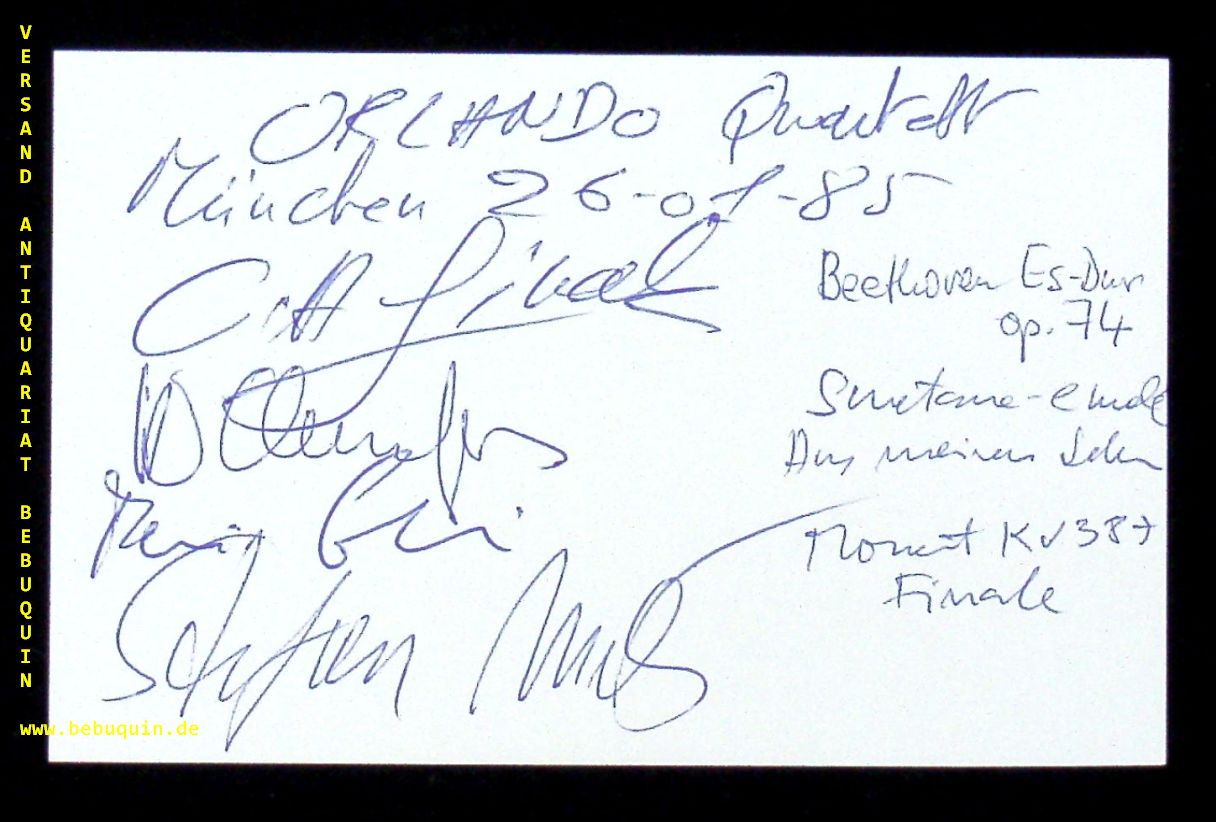 VERSAND ANTIQUARIAT BEBUQUIN
ORLANDO Quartett
München 26-01-85
Beethoven Es-Dur
op. 74
Smetana - emoll
Aus meinem Leben
Mozart KV 387
Finale
Stefan Metz
www.bebuquin.de